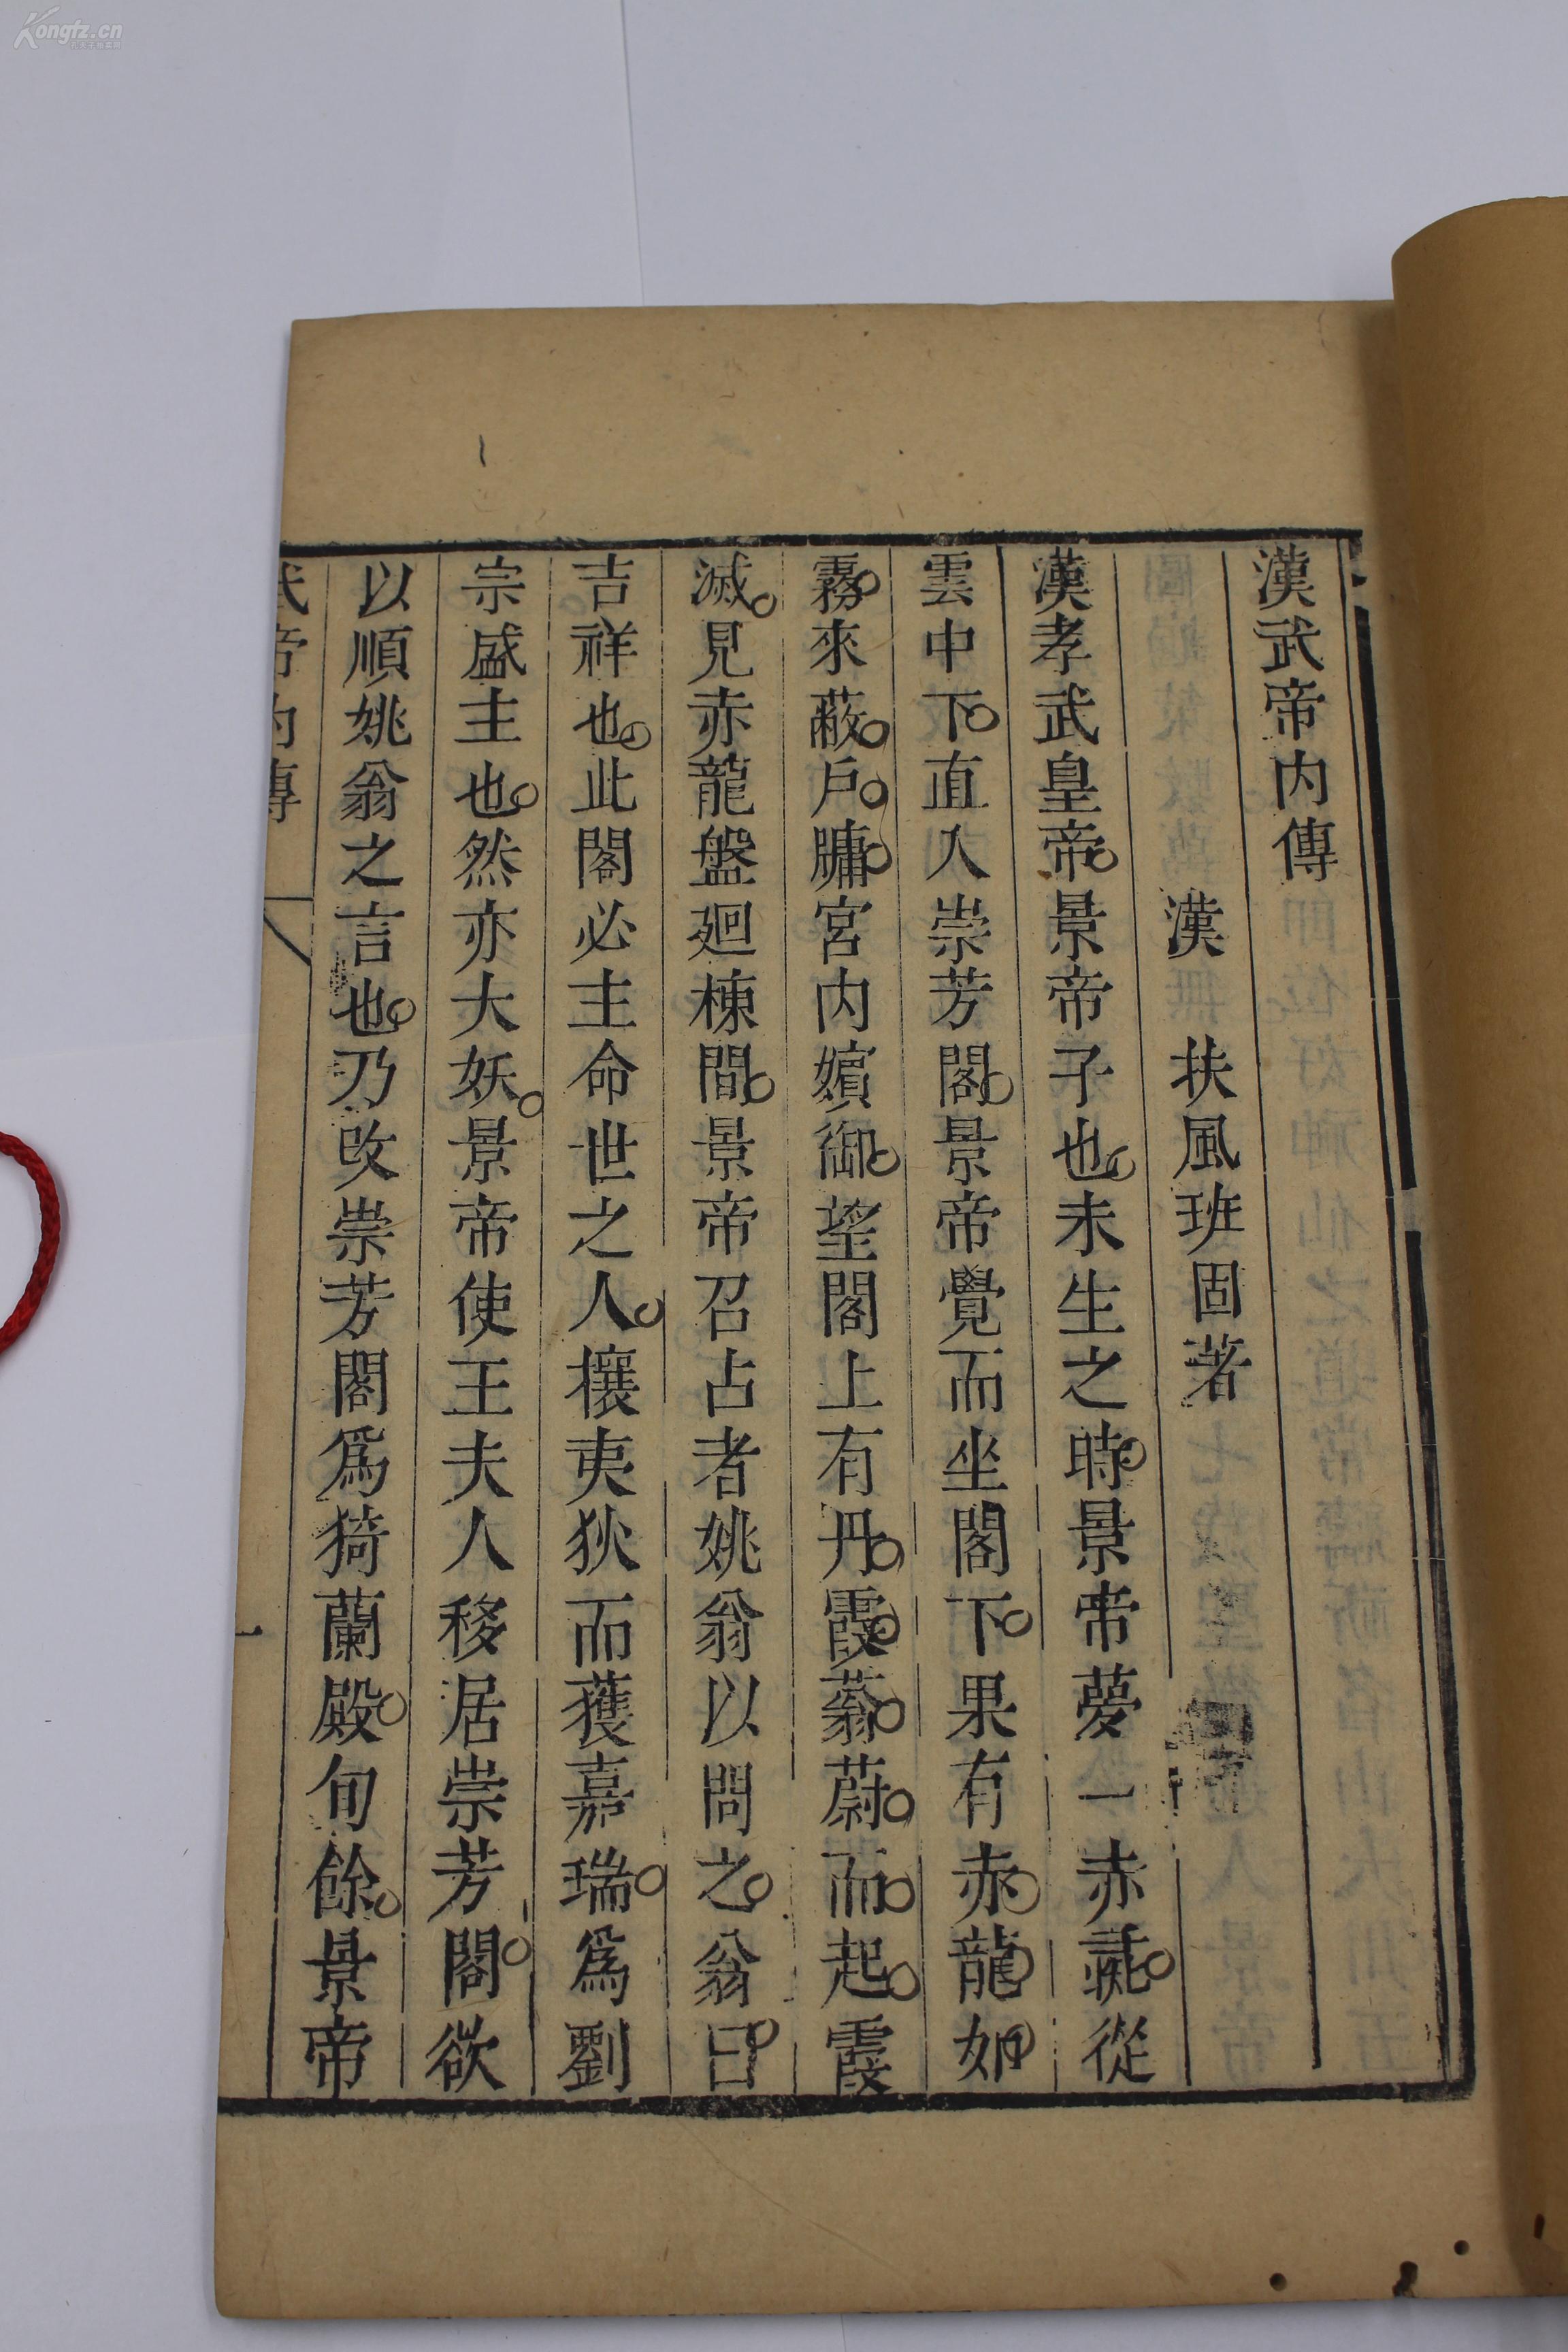 漢武帝内傳
漢 扶風班固著
漢孝武皇帝景帝子也未生之時景帝夢一赤彘從
雲中下直入崇芳閣景帝覺而坐閣下果有赤龍如
霧來蔽戶牗宮内嬪御望閣上有丹霞蓊蔚而起霞
滅見赤龍盤廻棟間景帝召占者姚翁以問之翁曰
吉祥也此閣必主命世之人攘夷狄而獲嘉瑞爲劉
宗盛主也然亦大妖景帝使王夫人移居崇芳閣欲
以順姚翁之言也乃改崇芳閣爲猗蘭殿旬餘景帝
武帝内傳
一
Kongfz.cn